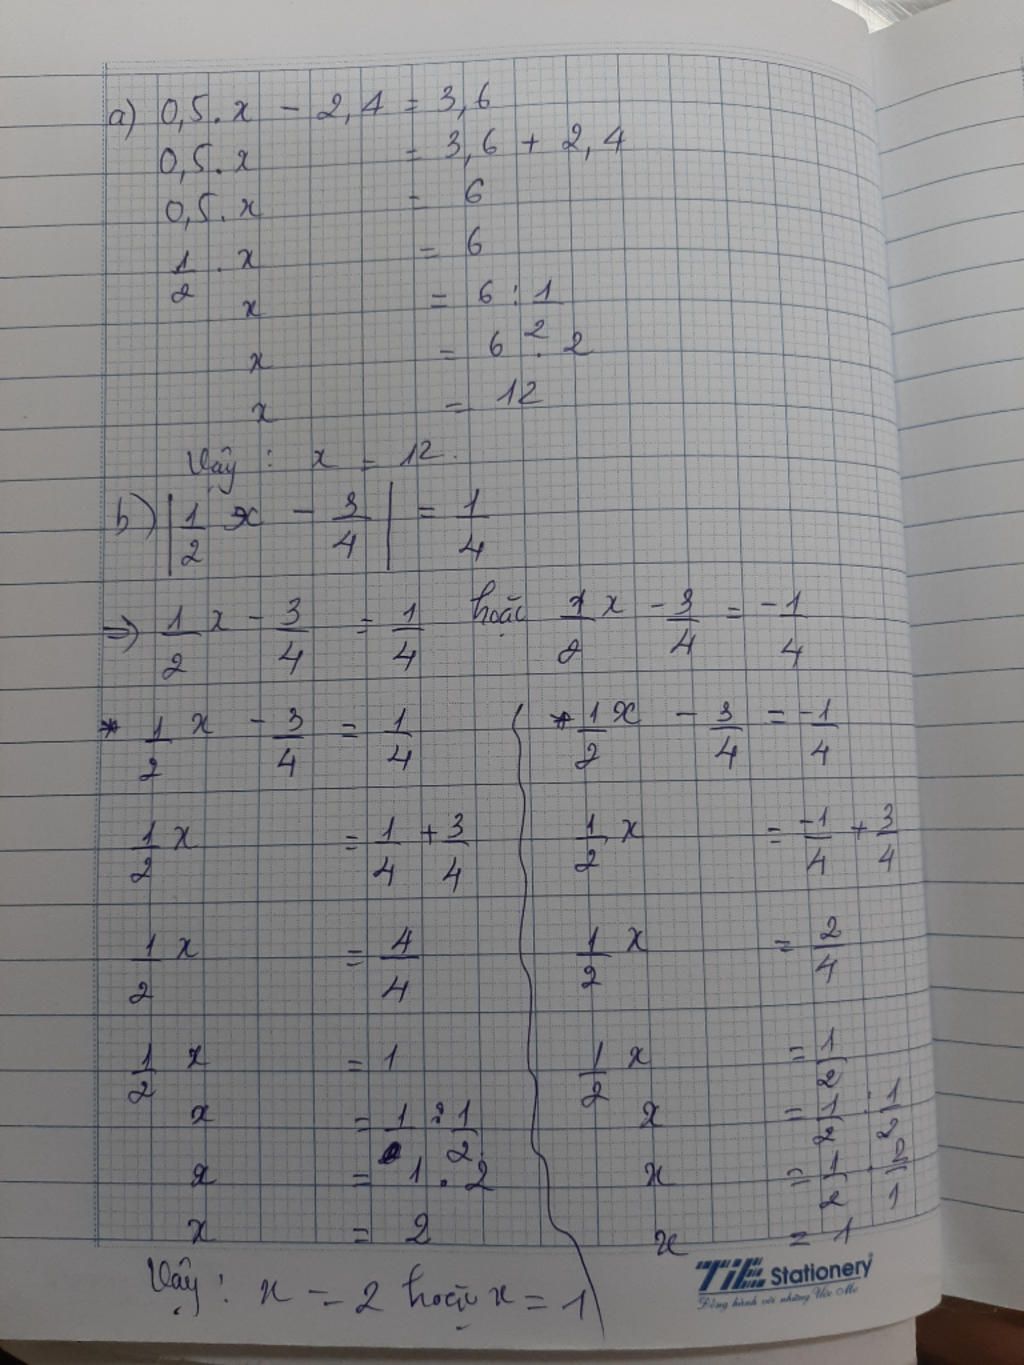 a) 0,5.x - 2,4 = 3,6
0,5.x = 3,6 + 2,4
0,5.x = 6
1/2 . x = 6
x = 6 : 1/2
x = 6 . 2
x = 12
Vậy : x = 12.
b) |1/2 x - 3/4| = 1/4
=> 1/2 x - 3/4 = 1/4 hoặc 1/2 x - 3/4 = -1/4
* 1/2 x - 3/4 = 1/4
1/2 x = 1/4 + 3/4
1/2 x = 4/4
1/2 x = 1
x = 1 : 1/2
x = 1 . 2
x = 2
* 1/2 x - 3/4 = -1/4
1/2 x = -1/4 + 3/4
1/2 x = 2/4
1/2 x = 1/2
x = 1/2 : 1/2
x = 1/2 . 2/1
x = 1
Vậy : x = 2 hoặc x = 1
TiE Stationery
Đồng hành với những Ước Mơ